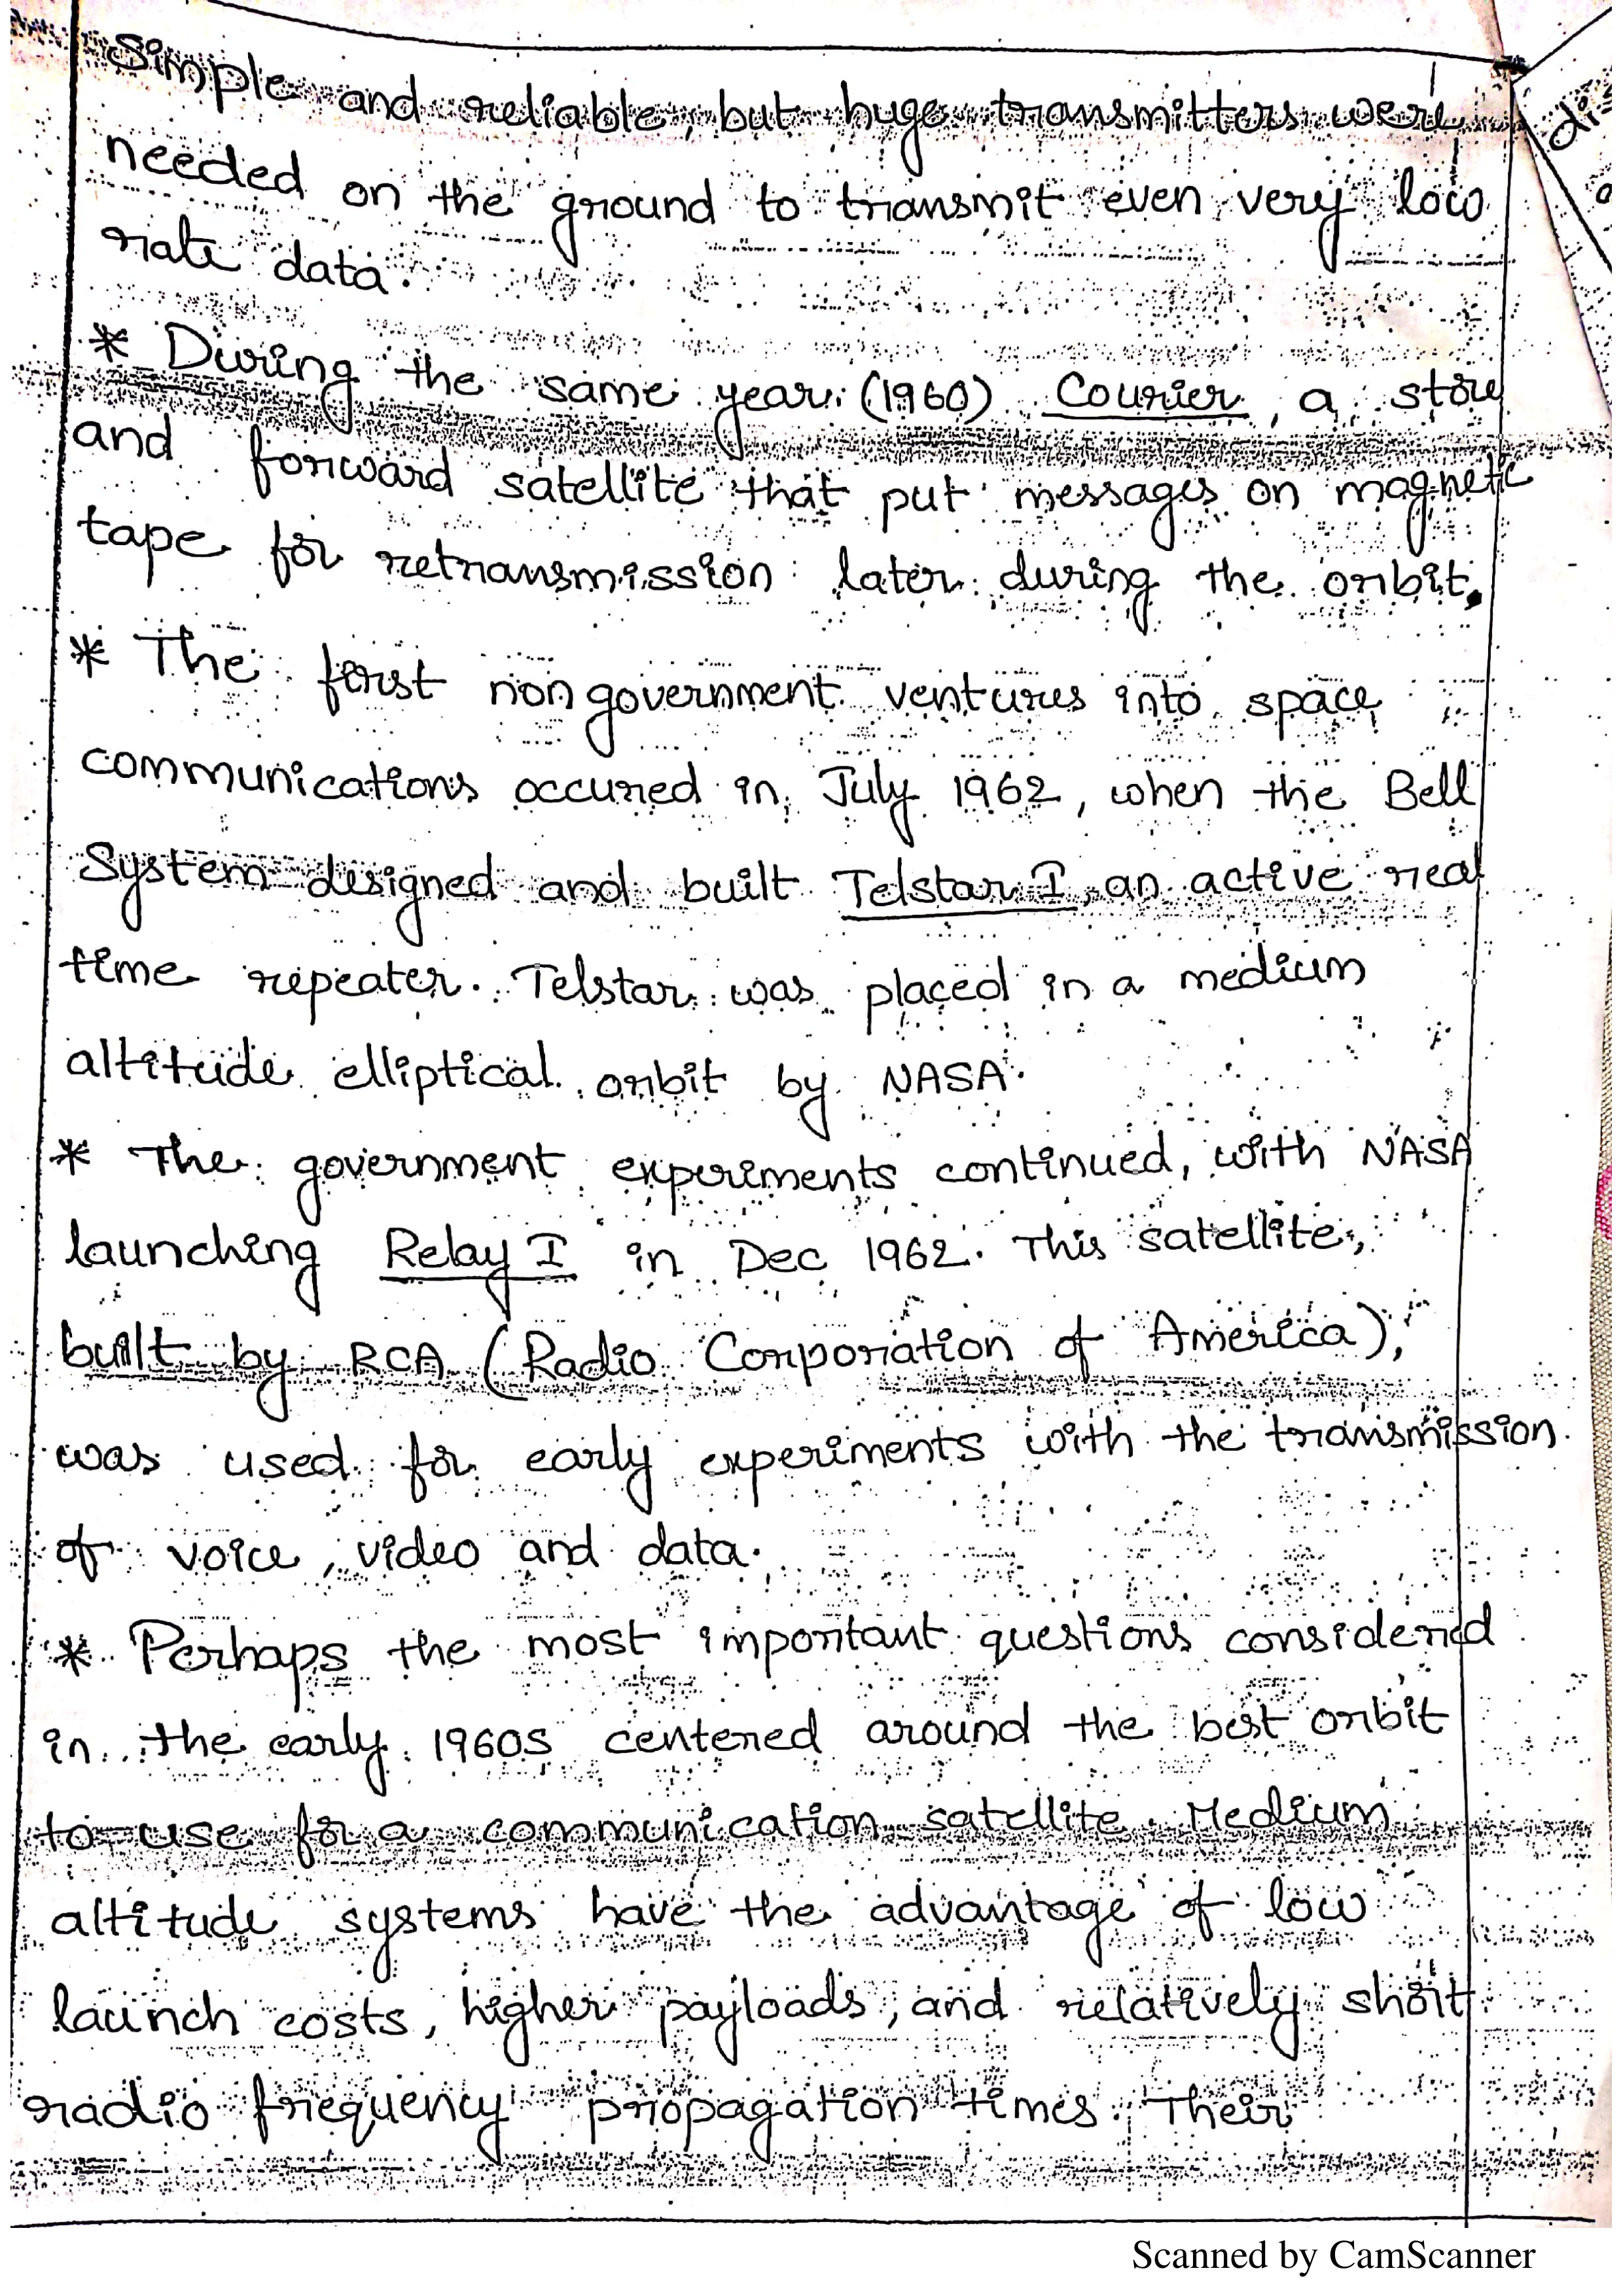 Simple and reliable, but huge transmitters were
needed on the ground to transmit even very low
rate data.
* During the same year (1960) Courier, a store
and forward satellite that put messages on magnetic
tape for retransmission later during the orbit.
* The first non government ventures into space
communications occured in July 1962, when the Bell
System designed and built Telstar I, an active real
time repeater. Telstar was placed in a medium
altitude elliptical orbit by NASA.
* The government experiments continued, with NASA
launching Relay I in Dec 1962. This satellite,
built by RCA (Radio Corporation of America),
was used for early experiments with the transmission
of voice, video and data.
* Perhaps the most important questions considered
in the early 1960s centered around the best orbit
to use for a communication satellite. Medium
altitude systems have the advantage of low
launch costs, higher payloads, and relatively short
radio frequency propagation times. Their
Scanned by CamScanner